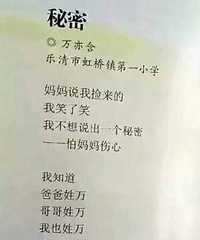 秘密
◎ 万亦含
乐清市虹桥镇第一小学
妈妈说我捡来的
我笑了笑
我不想说出一个秘密
——怕妈妈伤心
我知道
爸爸姓万
哥哥姓万
我也姓万